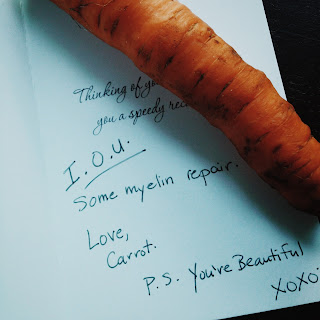 Thinking of you
you a speedy rec
I.O.U.
Some myelin repair.
Love,
Carrot.
P.S. You're Beautiful
XOXO